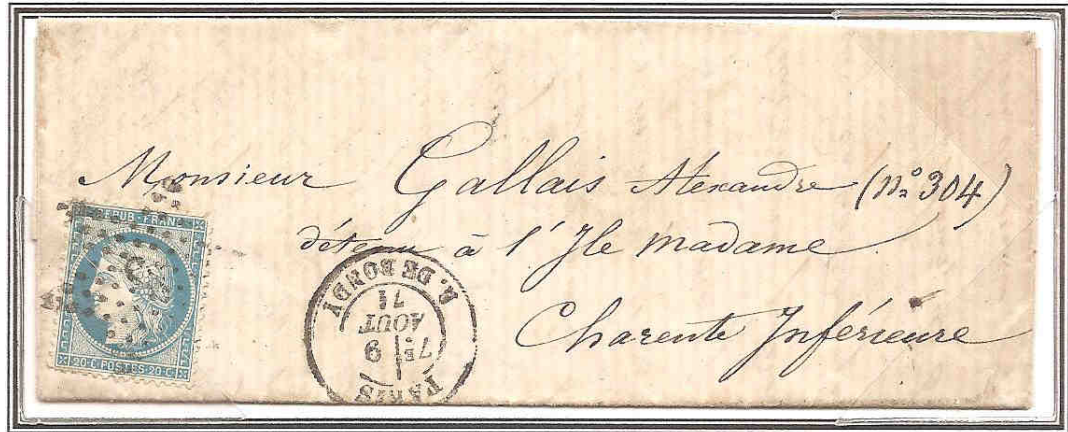 Monsieur Gallais Alexandre (N° 304)
détenu à l'Ile Madame
Charente Inférieure
REPUB·FRANC
20·C POSTES·20·C
PARIS
7E 9
AOUT
71
R. DE BONDY